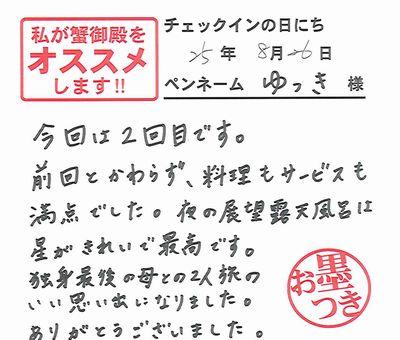 私が蟹御殿を
オススメ
します!!
チェックインの日にち
25年 8月26日
ペンネーム ゆっき 様
今回は2回目です。
前回とかわらず、料理もサービスも
満点でした。夜の展望露天風呂は
星がきれいで最高です。
独身最後の母との2人旅の
いい思い出になりました。
ありがとうございました。
お墨つき